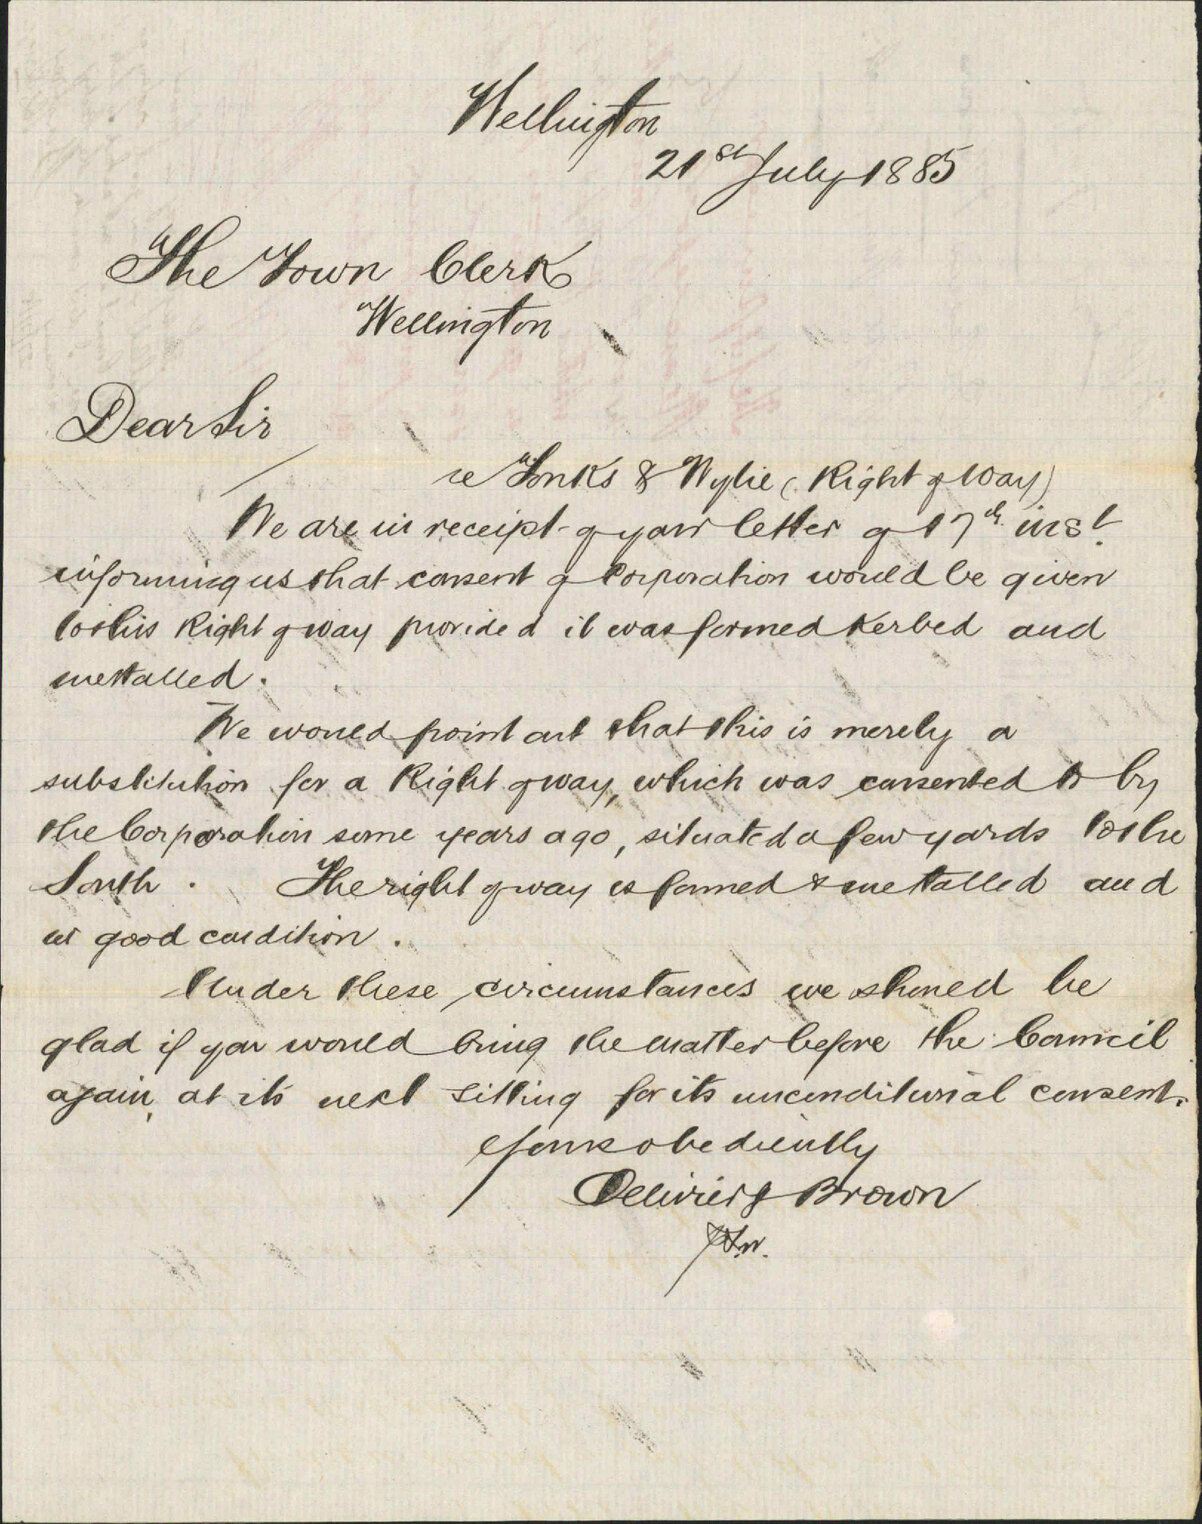 Wellington
21st July 1885
The Town Clerk
Wellington
Dear Sir
re Tonks & Wylie (Right of Way)
We are in receipt of your letter of 17th inst.
informing us that consent of Corporation would be given
to this Right of way provided it was formed Kerbed and
mettalled.
We would point out that this is merely a
substitution for a Right of way, which was consented to by
the Corporation some years ago, situated a few yards to the
South. The right of way is formed & mettalled and
in good condition.
Under these circumstances we should be
glad if you would bring the matter before the Council
again, at its next sitting for its unconditional consent.
Yours obediently
Ollivier & Brown